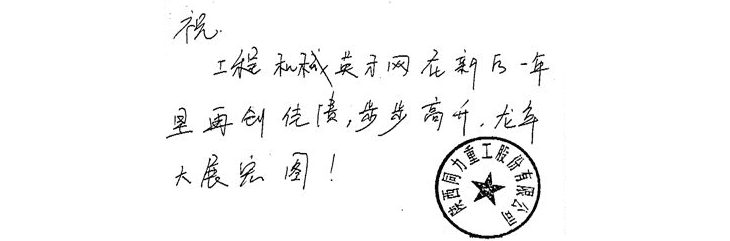 祝
工程机械英才网在新的一年
里再创佳绩,步步高升.龙年
大展宏图!
陕西同力重工股份有限公司